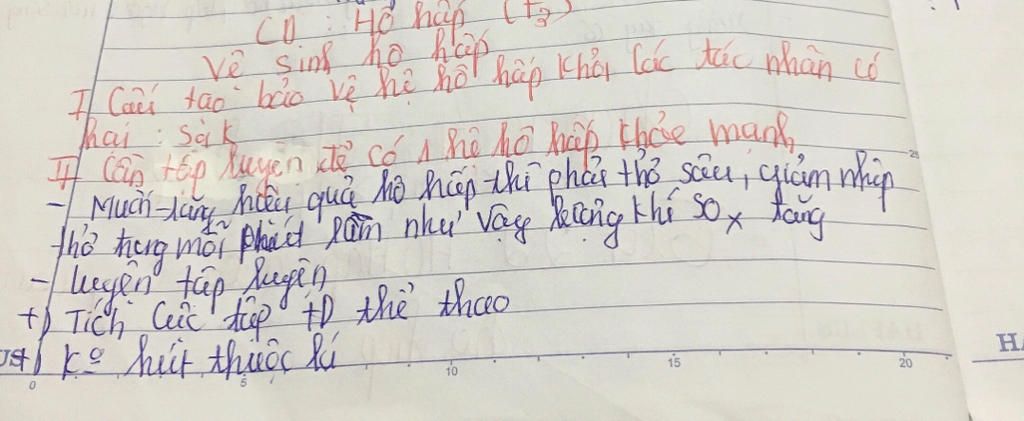 CĐ : Hô hấp (t3)
Vệ sinh hô hấp
I Cấu tạo bảo vệ hệ hô hấp khỏi các tác nhân có
hại : SGK
II Cần tập luyện để có 1 hệ hô hấp khỏe mạnh
- Muốn tăng hiệu quả hô hấp thì phải thở sâu, giảm nhịp
thở trong mỗi phút làm như vậy lượng khí tăng
- luyện tập luyện
+) Tích cực tập tD thể thao
+) Kº hút thuốc lá
0 5 10 15 20
25
HA